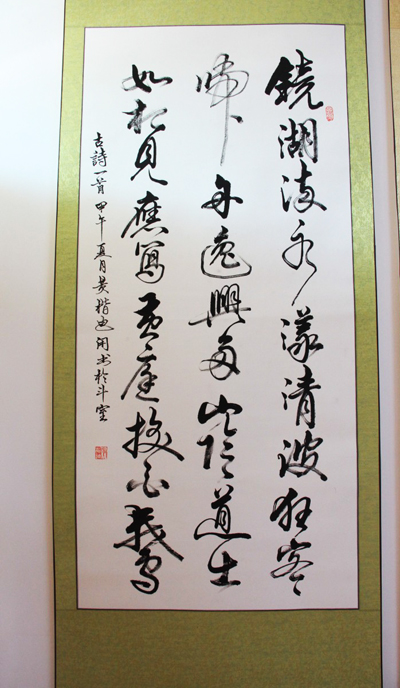 鏡湖流水漾清波狂客
歸舟逸興多山陰道士
如相見應寫黃庭換白鵝
古詩一首 甲午夏月 楷 书於斗室